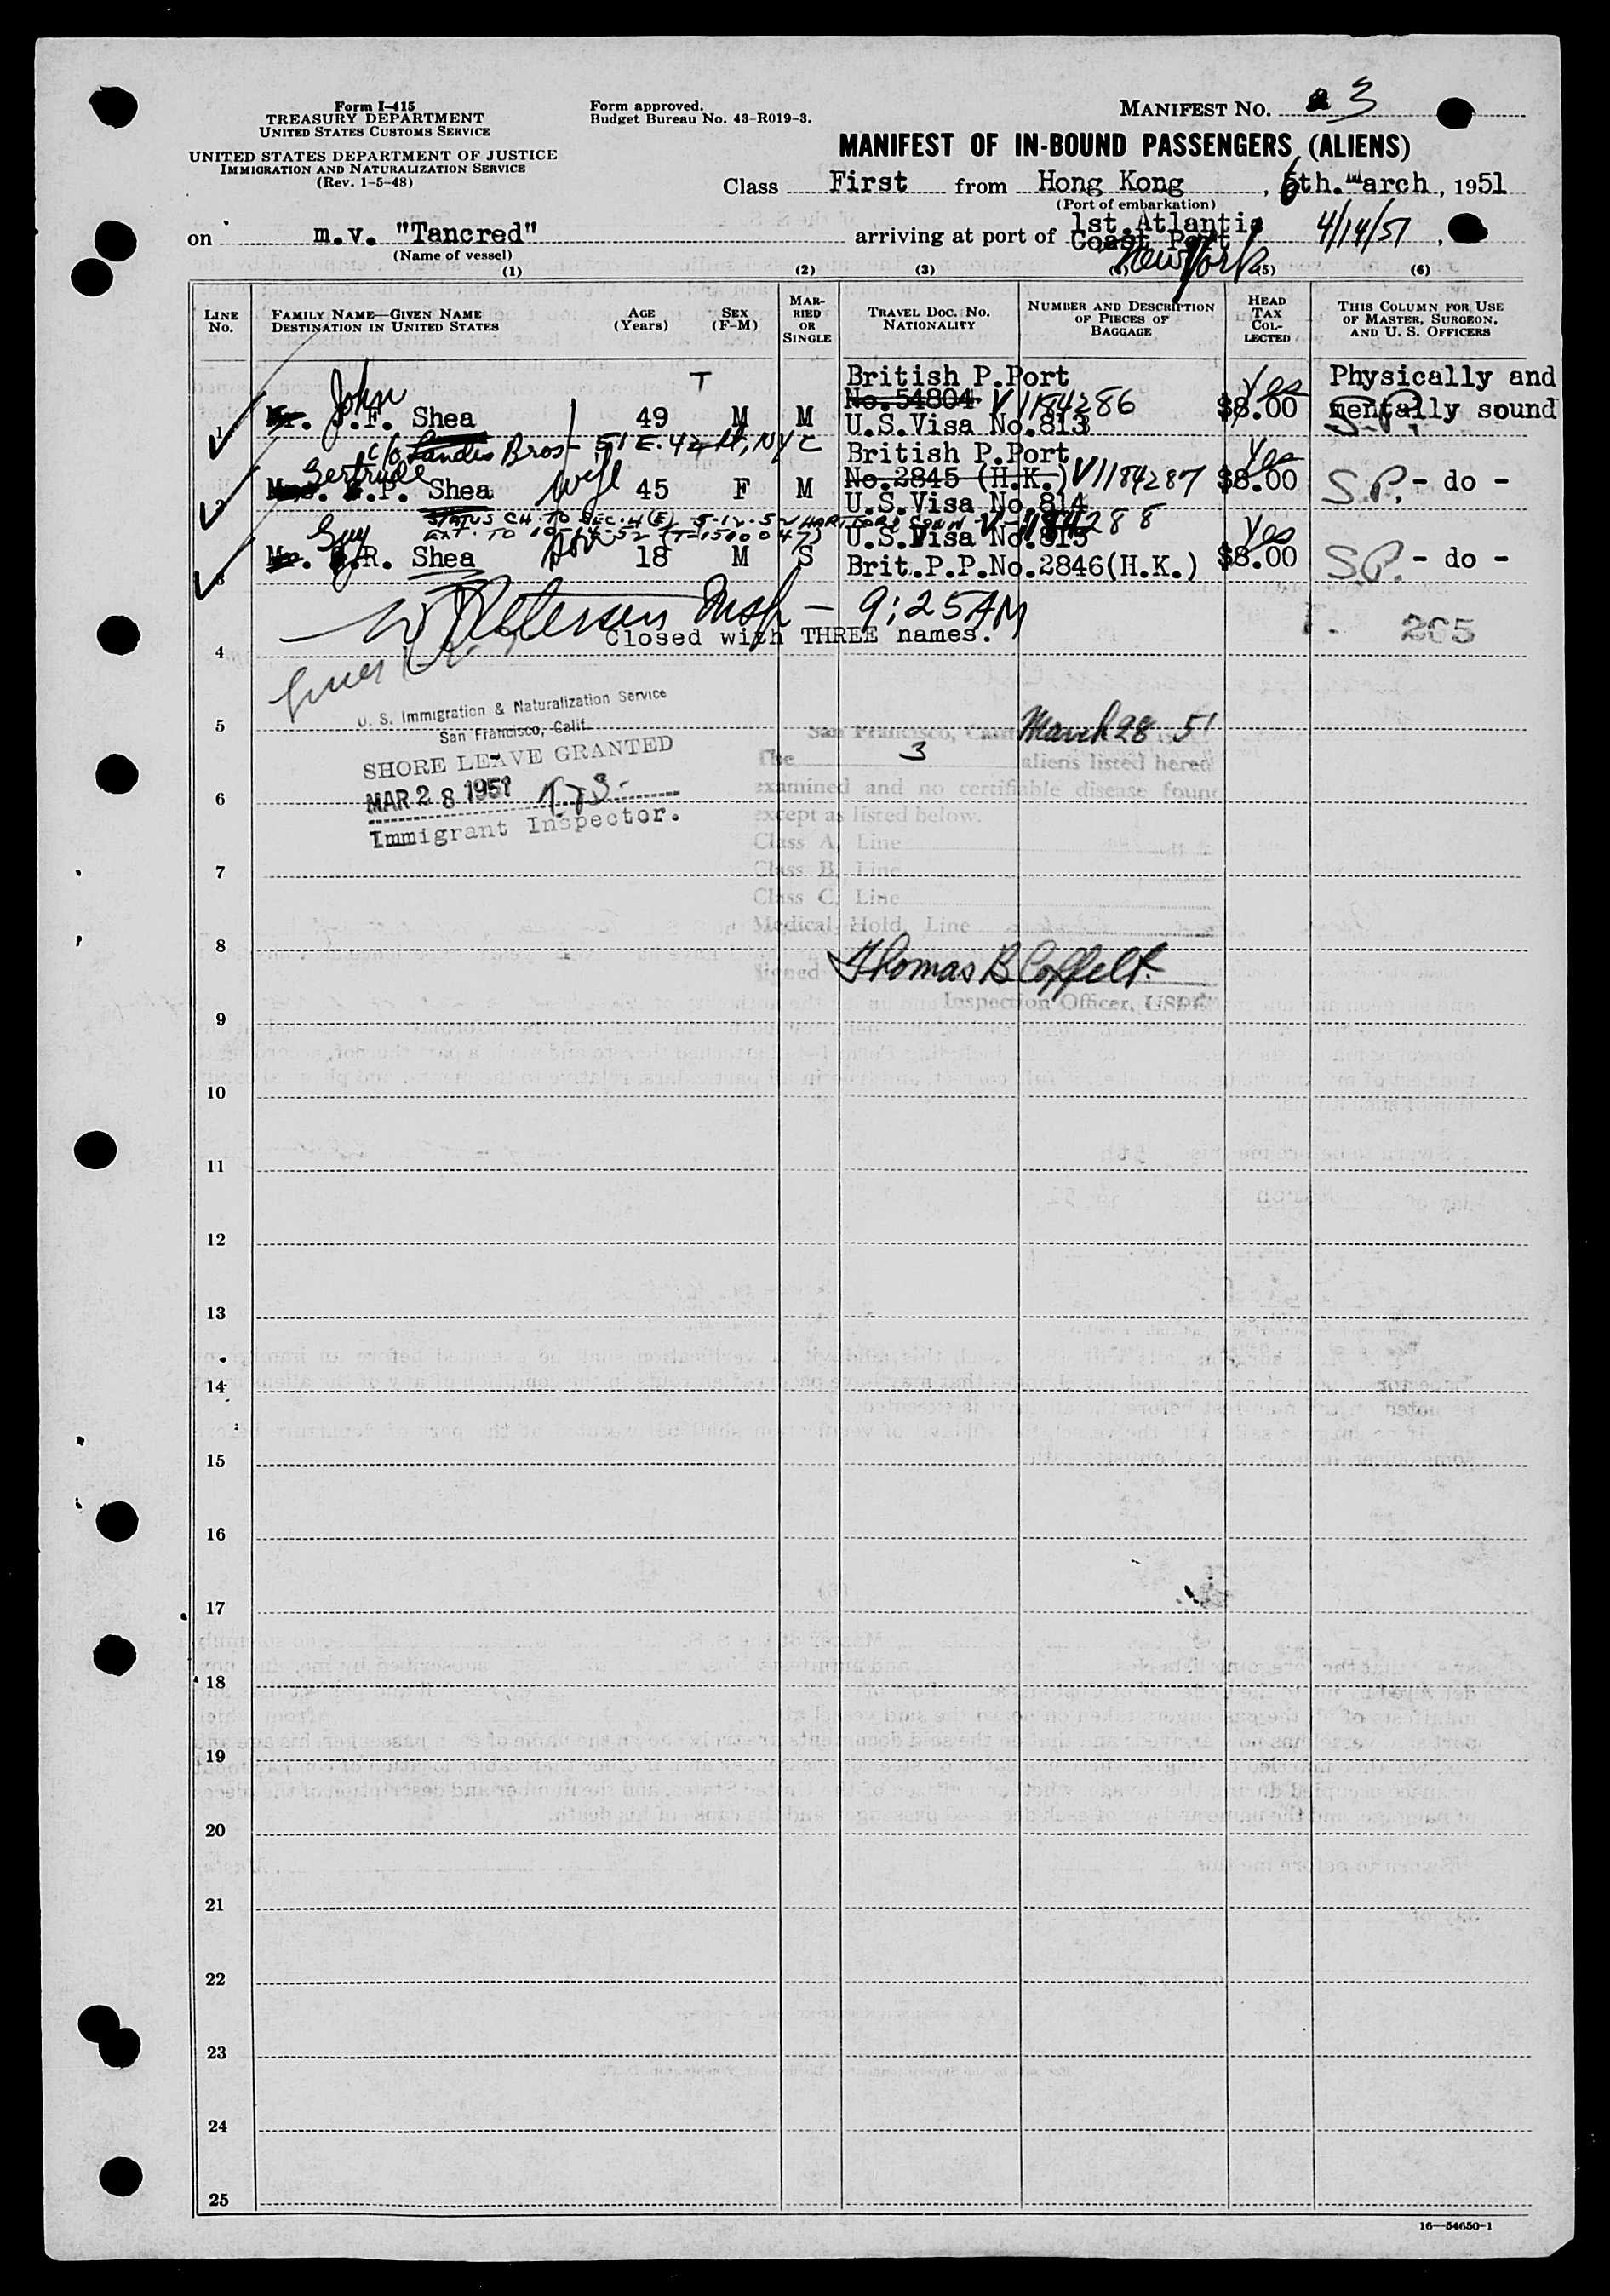 Form I-415
TREASURY DEPARTMENT
UNITED STATES CUSTOMS SERVICE
UNITED STATES DEPARTMENT OF JUSTICE
IMMIGRATION AND NATURALIZATION SERVICE
(Rev. 1-5-48)
Form approved.
Budget Bureau No. 43-R019-3.
MANIFEST NO. 3
MANIFEST OF IN-BOUND PASSENGERS (ALIENS)
Class First from Hong Kong, 6th. March, 1951
(Port of embarkation)
on m.v. "Tancred" arriving at port of 1st. Atlantic Coast Port New York 4/14/51,
(Name of vessel)
(1) (2) (3) (4) (5) (6)
LINE No.
FAMILY NAME—GIVEN NAME
DESTINATION IN UNITED STATES
AGE (Years)
SEX (F-M)
MARRIED OR SINGLE
TRAVEL DOC. NO. NATIONALITY
NUMBER AND DESCRIPTION OF PIECES OF BAGGAGE
HEAD TAX COLLECTED
THIS COLUMN FOR USE OF MASTER, SURGEON, AND U. S. OFFICERS
T
British P.Port
No. 54804 V1184286
1 Mr. J.F. Shea John 49 M M U.S.Visa No.813 Yes $8.00 Physically and mentally sound S.P.
c/o Landis Bros - 51 E. 42 St, NYC
British P.Port
No.2845 (H.K.) V1184287
2 Mrs. G.P. Shea Gertrude wife 45 F M U.S.Visa No.814 Yes $8.00 S.P. - do -
STATUS CH. TO SEC. 4(E) 5-12-52 HARTFORD CONN V-1184288
EXT. TO 10-14-52 (T-1500047)
U.S.Visa No.815
3 Mr. G.R. Shea Guy son 18 M S Brit.P.P.No.2846(H.K.) Yes $8.00 S.P. - do -
Insp - 9:25AM
Closed with THREE names.
265
4
U. S. Immigration & Naturalization Service
San Francisco, Calif.
SHORE LEAVE GRANTED
MAR 28 1951
Immigrant Inspector.
San Francisco, Calif March 28 51
The 3 aliens listed hereo
examined and no certifiable disease found
except as listed below.
Class A, Line
Class B, Line
Class C, Line
Medical Hold, Line
Signed Thomas B Coffelt
Inspection Officer, USPHS
5
6
7
8
9
10
11
12
13
14
15
16
17
18
19
20
21
22
23
24
25
16—54650-1